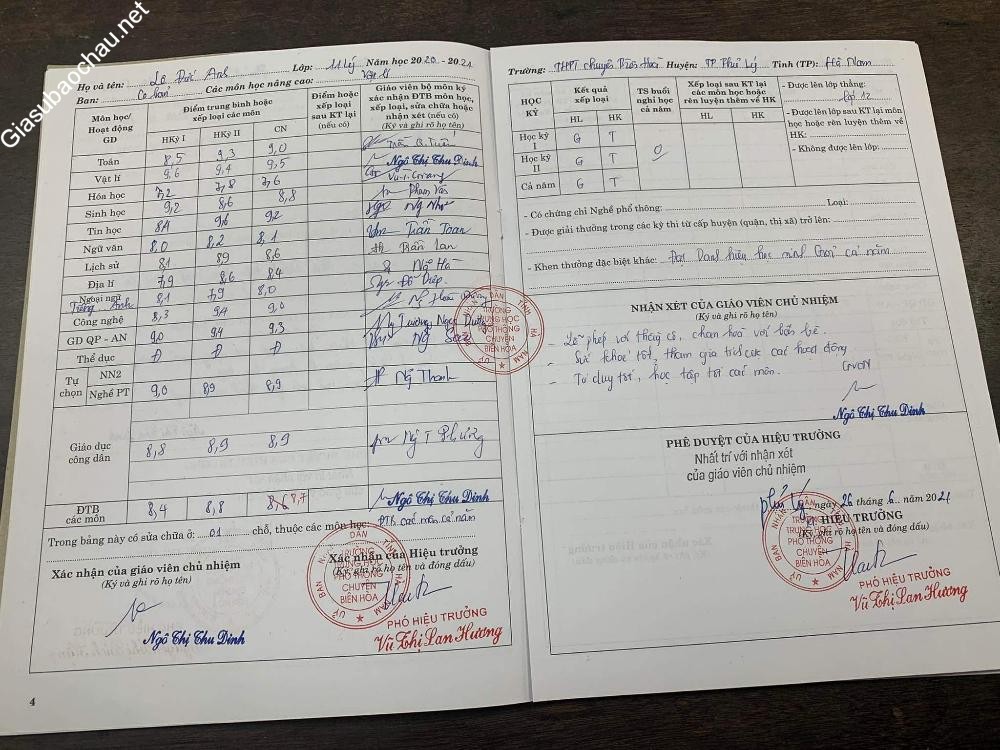 Giasubaochau.net
Họ và tên: Lê Đức Anh Lớp: 11 Lý Năm học 2020 - 2021
Ban: Cơ bản Các môn học nâng cao: Vật lí
Môn học/ Hoạt động GD
Điểm trung bình hoặc xếp loại các môn
HKỳ I HKỳ II CN
Điểm hoặc xếp loại sau KT lại (nếu có)
Giáo viên bộ môn ký xác nhận ĐTB môn học, sửa chữa hoặc nhận xét (nếu có)
(Ký và ghi rõ họ tên)
Toán 8,5 9,3 9,0 Trần Q. Tuấn
Vật lí 9,6 9,4 9,5 Ngô Thị Thu Dinh
Hóa học 7,2 7,8 7,6
Sinh học 9,2 8,6 8,8 Phạm Vân
Tin học 8,4 9,6 9,2 Ng Như
Ngữ văn 8,0 8,2 8,1 Trần Toan
Lịch sử 8,1 8,9 8,6 Trần Lan
Địa lí 7,9 8,6 8,4 Ngô Hà
Ngoại ngữ Tiếng Anh 8,1 7,9 8,0 Đỗ Diệp
Công nghệ 8,3 9,4 9,0
GD QP - AN 9,0 9,4 9,3 Trương Ngọc
Thể dục Đ Đ Đ
Tự chọn
NN2
Nghề PT 9,0 8,9 8,9 Ng Thanh
Giáo dục công dân 8,8 8,9 8,9 Ng T Phượng
ĐTB các môn 8,4 8,8 8,6 8,7 Ngô Thị Thu Dinh
Trong bảng này có sửa chữa ở: 01 chỗ, thuộc các môn học: ĐTB các môn cả năm
Xác nhận của giáo viên chủ nhiệm
(Ký và ghi rõ họ tên)
Ngô Thị Thu Dinh
Xác nhận của Hiệu trưởng
(Ký, ghi rõ họ tên và đóng dấu)
UỶ BAN NHÂN DÂN TỈNH HÀ NAM
TRƯỜNG
TRUNG HỌC
PHỔ THÔNG
CHUYÊN
BIÊN HÒA
PHÓ HIỆU TRƯỞNG
Vũ Thị Lan Hương
4
Trường: THPT chuyên Biên Hoà Huyện: TP Phủ Lý Tỉnh (TP): Hà Nam
HỌC KỲ
Kết quả xếp loại
HL HK
TS buổi nghỉ học cả năm
Xếp loại sau KT lại các môn học hoặc rèn luyện thêm về HK
HL HK
Học kỳ I G T
Học kỳ II G T
Cả năm G T
0
- Được lên lớp thẳng: lớp 12
- Được lên lớp sau KT lại môn học hoặc rèn luyện thêm về HK:
- Không được lên lớp:
- Có chứng chỉ Nghề phổ thông: Loại:
- Được giải thưởng trong các kỳ thi từ cấp huyện (quận, thị xã) trở lên:
- Khen thưởng đặc biệt khác: Đạt Danh hiệu học sinh Giỏi cả năm
NHẬN XÉT CỦA GIÁO VIÊN CHỦ NHIỆM
(Ký và ghi rõ họ tên)
- Lễ phép với thầy cô, chan hoà với bạn bè.
- Sức khoẻ tốt, tham gia tích cực các hoạt động
- Tư duy tốt, học tập tốt các môn.
GVCN
Ngô Thị Thu Dinh
PHÊ DUYỆT CỦA HIỆU TRƯỞNG
Nhất trí với nhận xét
của giáo viên chủ nhiệm
Phủ Lý, ngày 26 tháng 6 năm 2021
HIỆU TRƯỞNG
(Ký, ghi rõ họ tên và đóng dấu)
PHÓ HIỆU TRƯỞNG
Vũ Thị Lan Hương